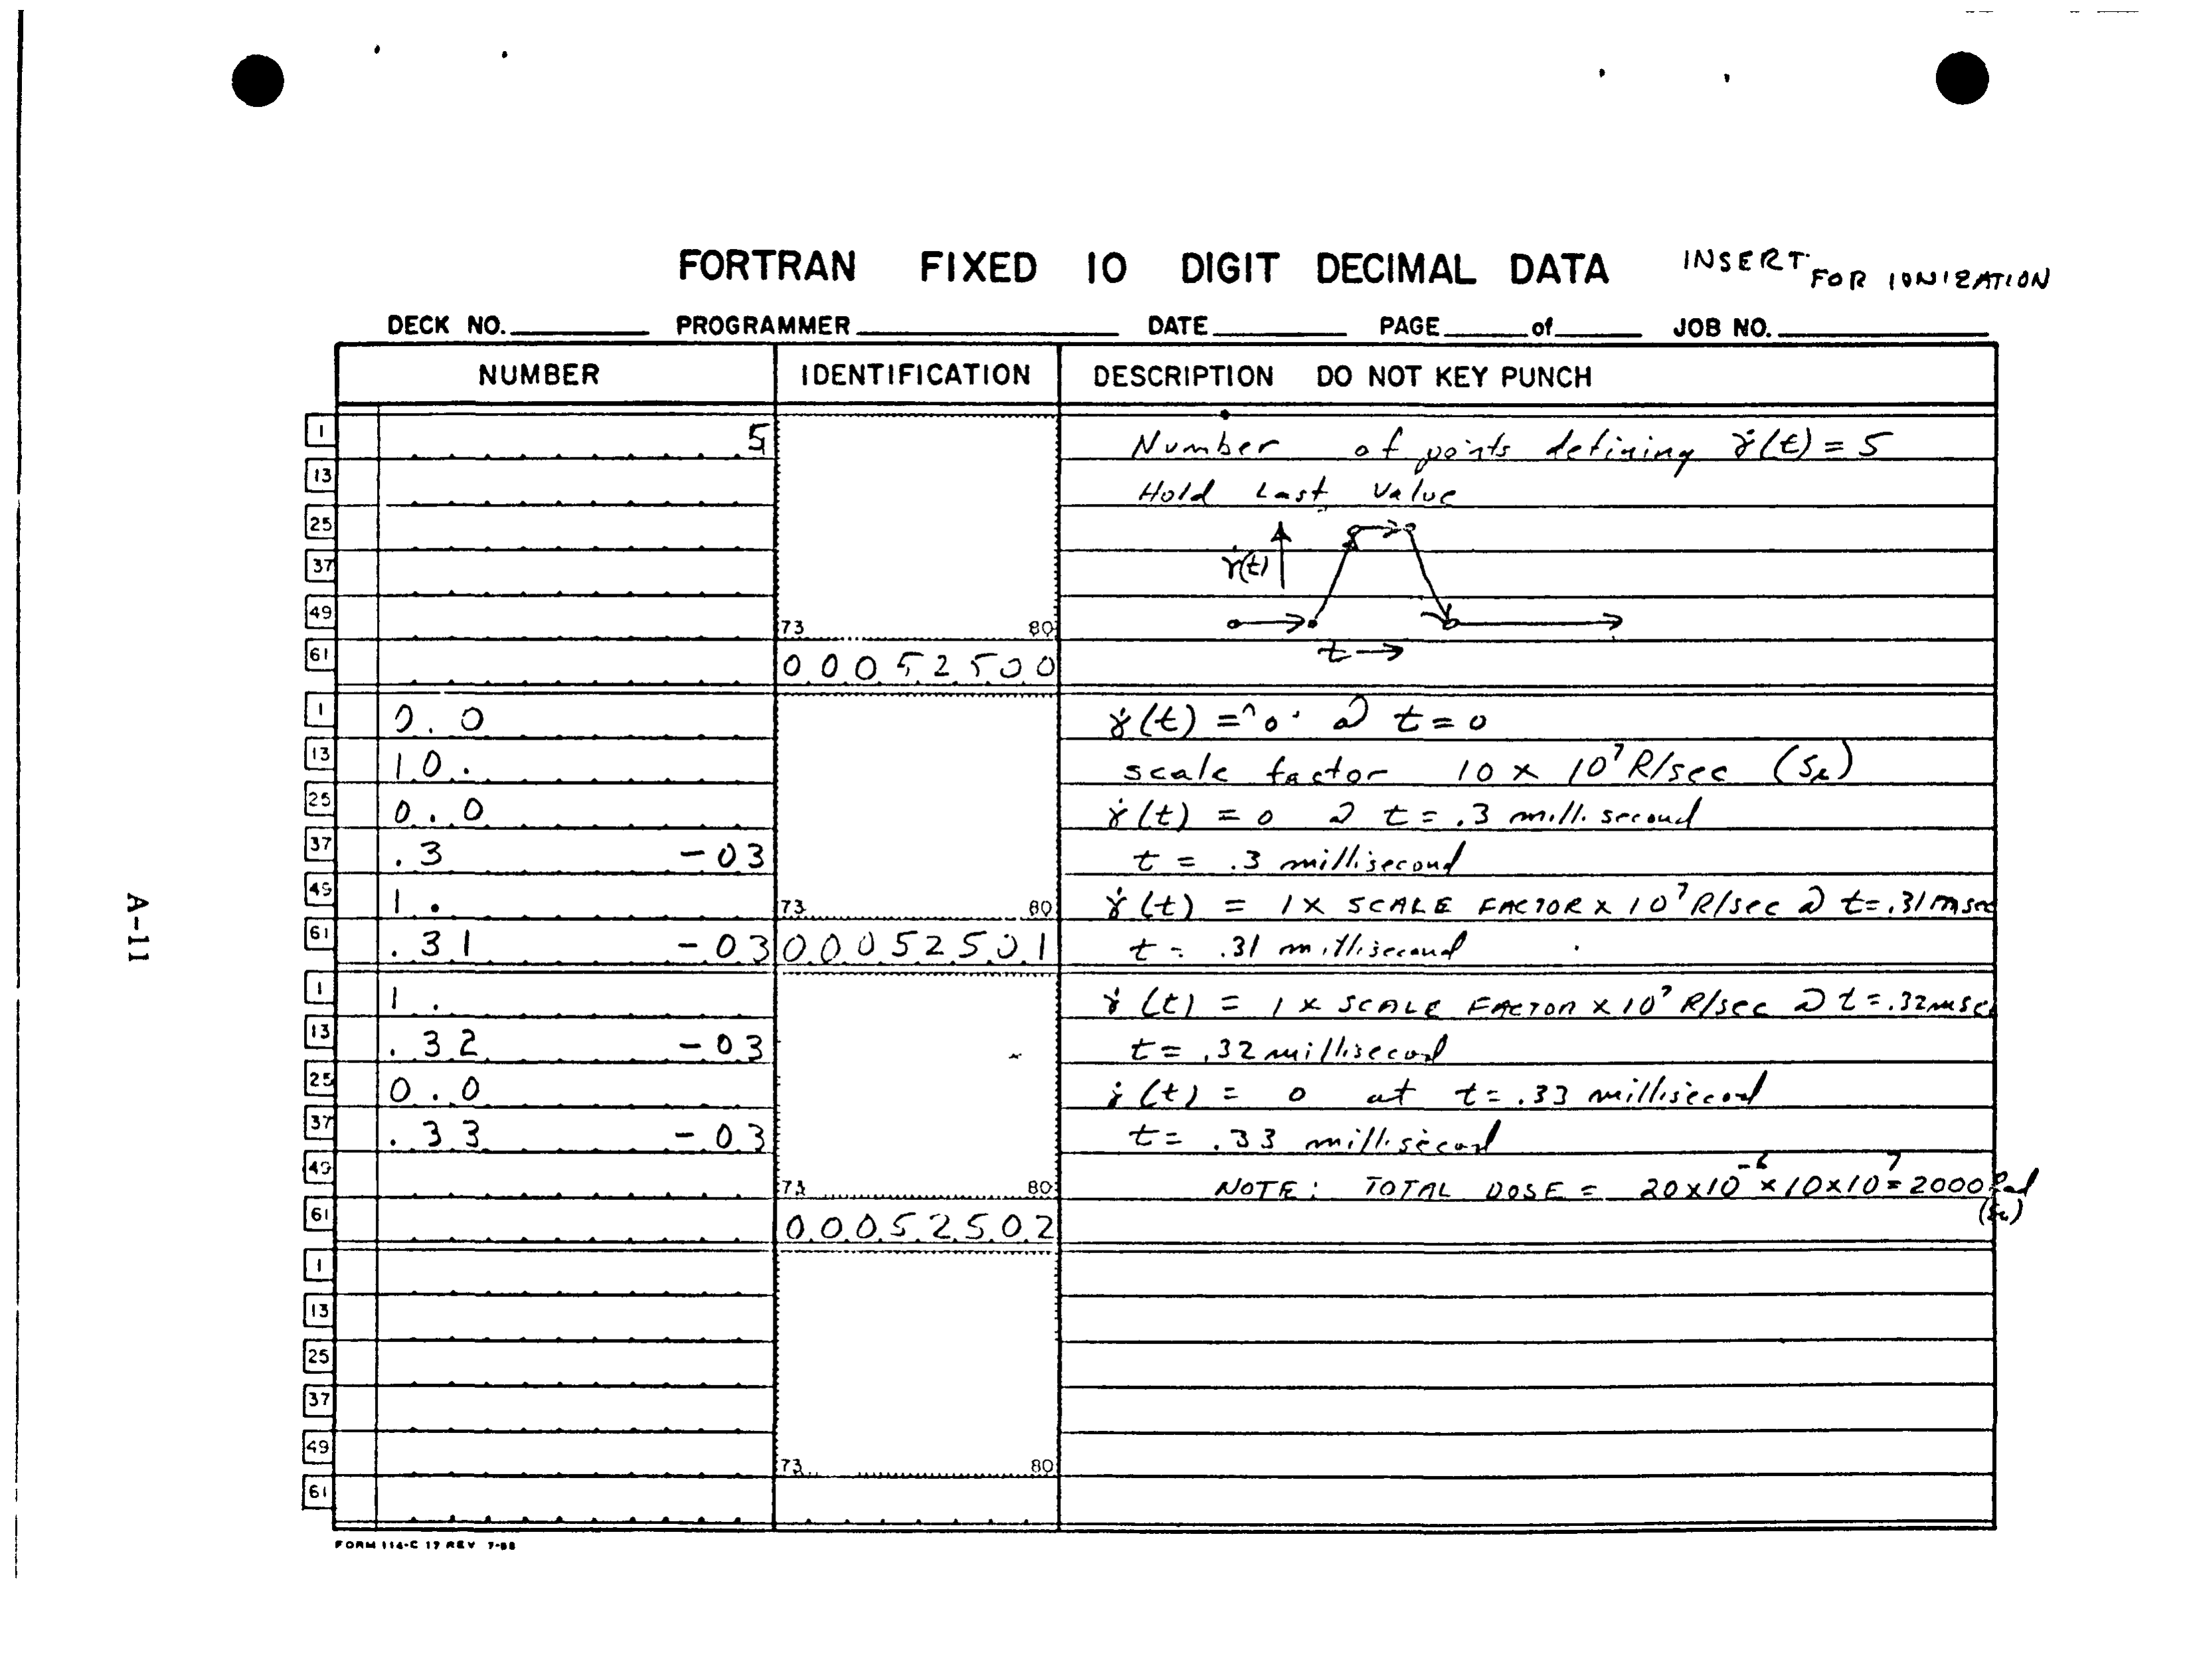 FORTRAN FIXED 10 DIGIT DECIMAL DATA INSERT FOR IONIZATION
DECK NO. PROGRAMMER DATE PAGE of JOB NO.
NUMBER IDENTIFICATION DESCRIPTION DO NOT KEY PUNCH
1 5 Number of points defining γ̇(t) = 5
13 Hold Last Value
25
37 γ̇(t)
49 73 80
61 00052500 t →
1 0.0 γ̇(t) = 0 @ t = 0
13 10. scale factor 10 × 10⁷ R/sec (Si)
25 0.0 γ̇(t) = 0 @ t = .3 millisecond
37 .3 -03 t = .3 millisecond
49 1. 73 80 γ̇(t) = 1 × SCALE FACTOR × 10⁷ R/sec @ t=.31 msec
61 .31 -03 00052501 t = .31 millisecond
1 1. γ̇(t) = 1 × SCALE FACTOR × 10⁷ R/sec @ t=.32 msec
13 .32 -03 t = .32 millisecond
25 0.0 γ̇(t) = 0 at t = .33 millisecond
37 .33 -03 t = .33 millisecond
49 73 80 NOTE: TOTAL DOSE = 20×10⁻⁶×10×10⁷=2000 Rad
61 00052502 (Si)
1
13
25
37
49 73 80
61
FORM 114-C 17 REV 7-
A-11